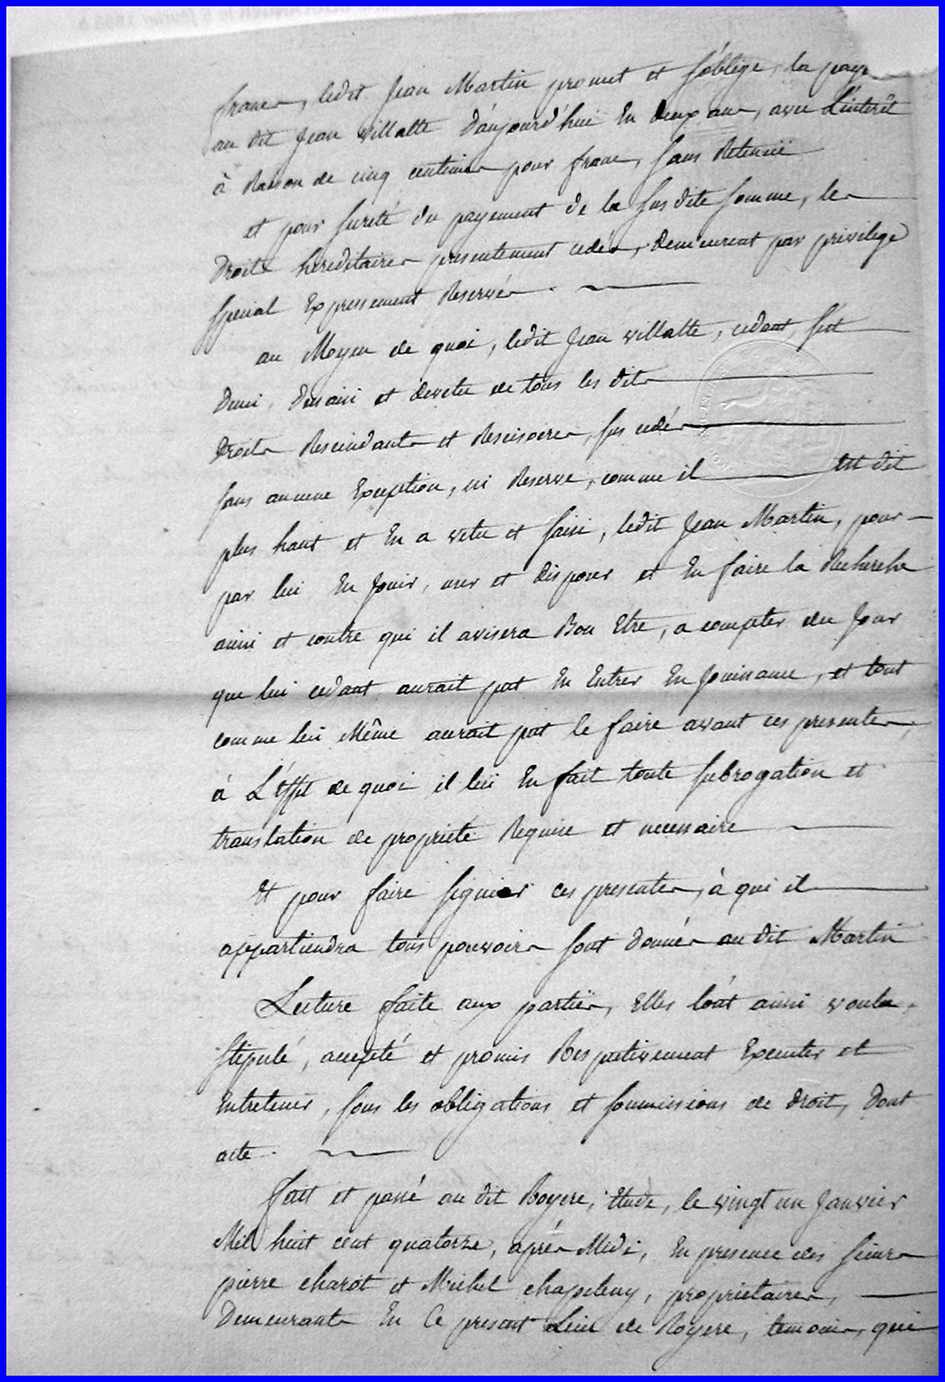 francs, ledit Jean Martin promet et s'oblige, la payer
au dit Jean villatte d'aujourd'hui En deux ans, avec L'interêt
à Raison de cinq centimes pour franc, sans Retenüe
et pour sureté du payement de la susdite somme, les
Droits hereditaires presentement cedés, demeurent par privilege
special Expressement Reservés.
au Moyen de quoi, ledit Jean villatte, cedant, s'est
Demi, Dessaisi et devetu de tous les dits
Droits Rescindants et Rescisoires, sus cedés,
sans aucune Exception, ni Reserve, comme il Est dit
plus haut et En a vetu et saisi, ledit Jean Martin, pour
par lui En Jouir, user et disposer et En faire la Recherche
ainsi et contre qui il avisera Bon Etre, a compter du Jour
que lui cedant aurait put En Entrer En Jouissance, et tout
comme lui Même aurait put le faire avant ces presentes,
à L'Effet de quoi il lui En fait toute subrogation et
translation de proprieté Requise et necessaire
Et pour faire signier ces presentes, à qui il
appartiendra tous pouvoirs sont donnés au dit Martin
Lecture faite aux parties, Elles l'oat ainsi voulu,
stipulé, accepté et promis Respectivement Executer et
Entretenir, sous les obligations et soumissions de droit, Dont
acte.
fait et passé au dit Royere, Etude, le vingt un Janvier
Mil huit cent quatorze, après Midi, En presence des sieurs
pierre charot et Michel, proprietaires,
Demeurants En Ce present Lieu de Royere, temoins, qui